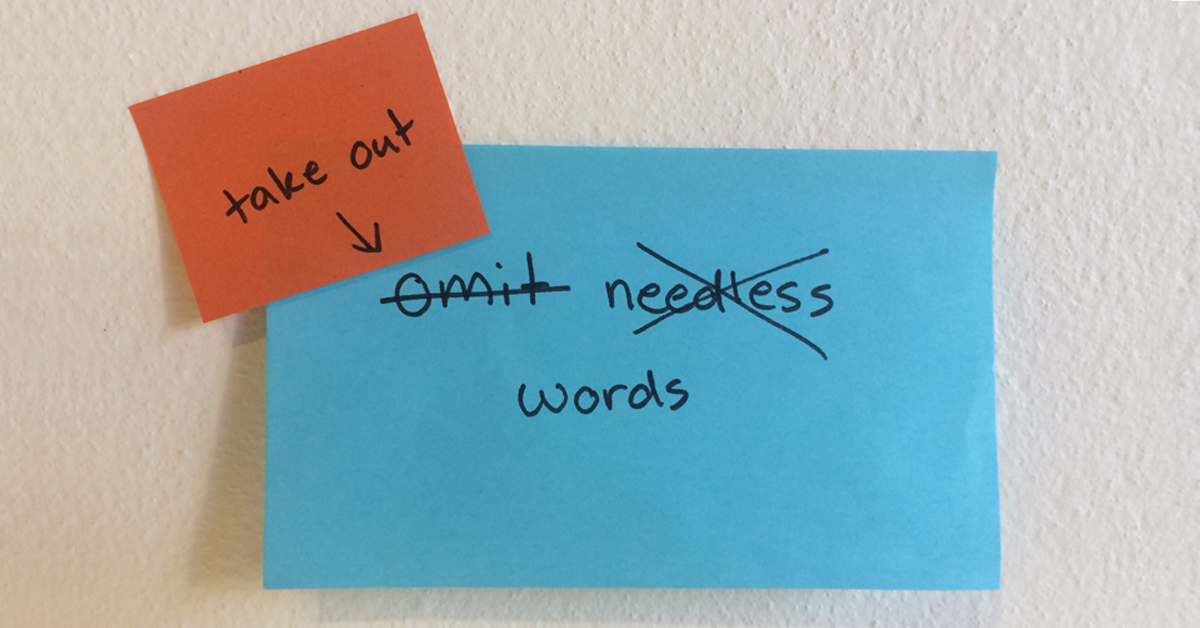 take out
↓
omit needless
words